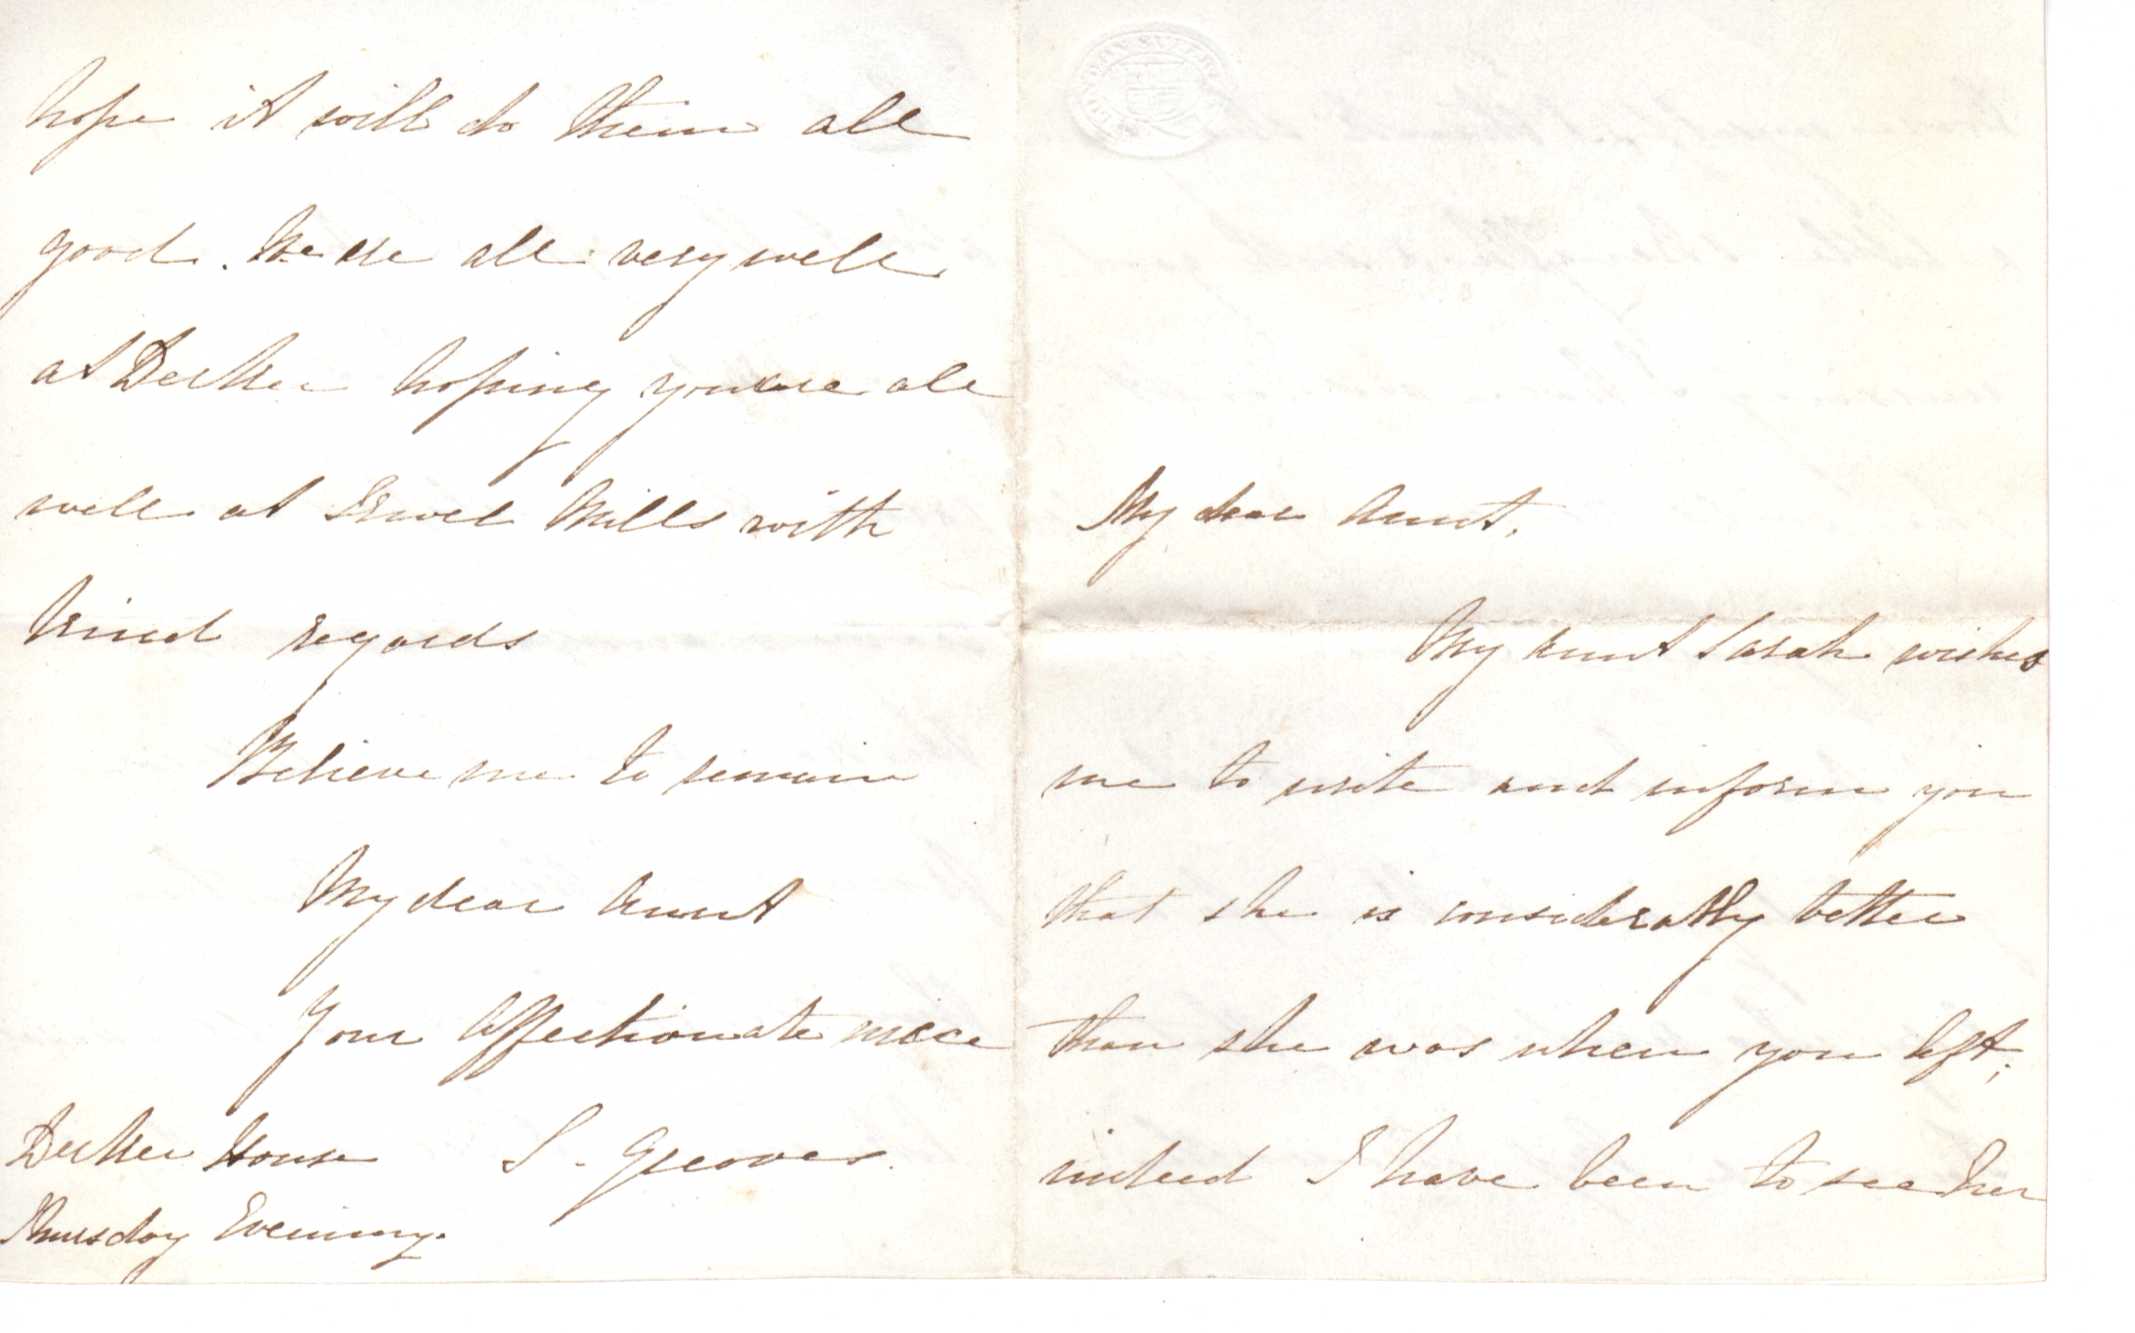 hope it will do them all
good. We are all very well
at Derker hoping you are all
well at Irwel Mills with
kind regards
Believe me to remain
My dear Aunt
Your Affectionate niece
Derker House S. Greaves.
Thursday Evening.
LONDON
My dear Aunt,
My Aunt Sarah wishes
me to write and inform you
that she is considerably better
than she was when you left;
indeed I have been to see her